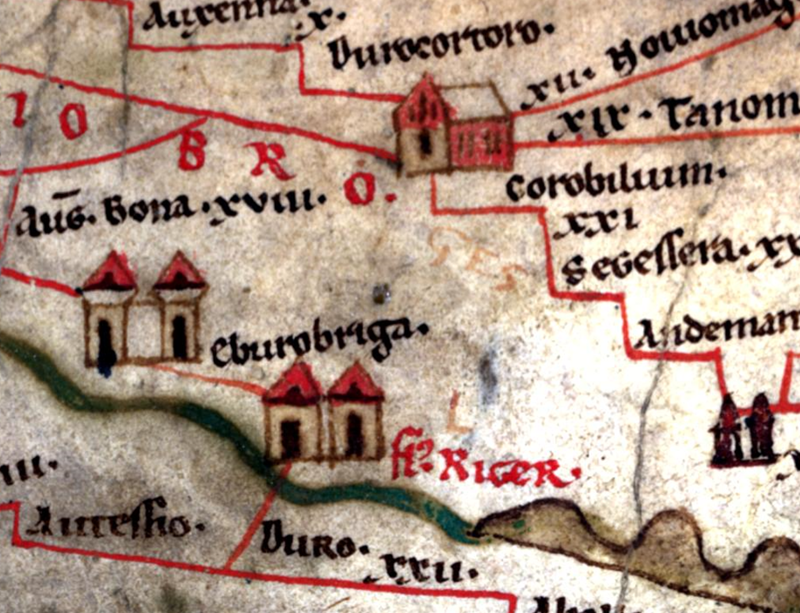 Auxenna. x.
Durocortoro.
xii. Nowiomag
xix. Tanom
I O
B R O.
Corobilium.
Aug. Bona. xviii.
xxi
Segessera. xx
Andeman
Eburobriga.
fl. RIGER.
iii.
Autessio.
Duro.
xxii.